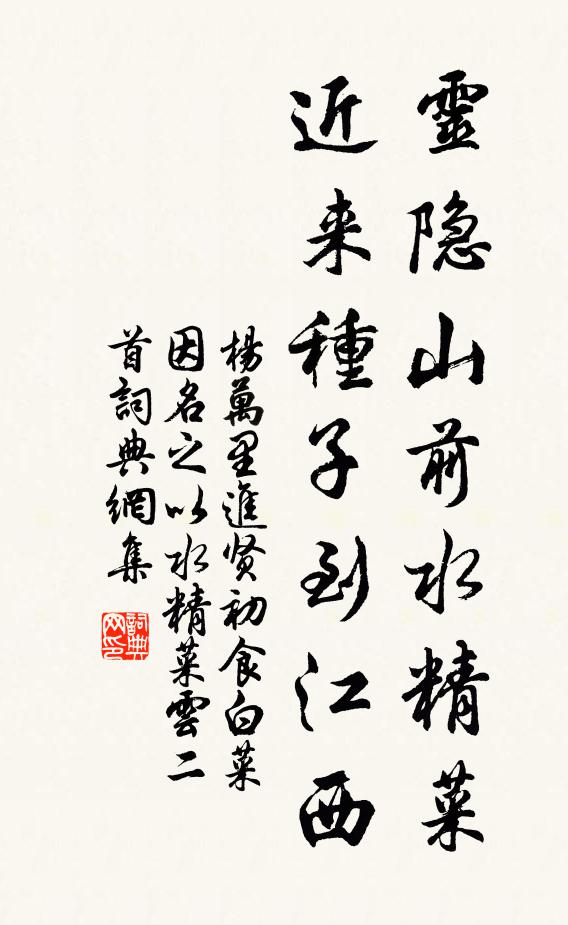 靈隐山前水精菜
近来種子到江西
楊萬里進贤初食白菜
因名之以水精菜雲二
首詞典網集
詞典
网印